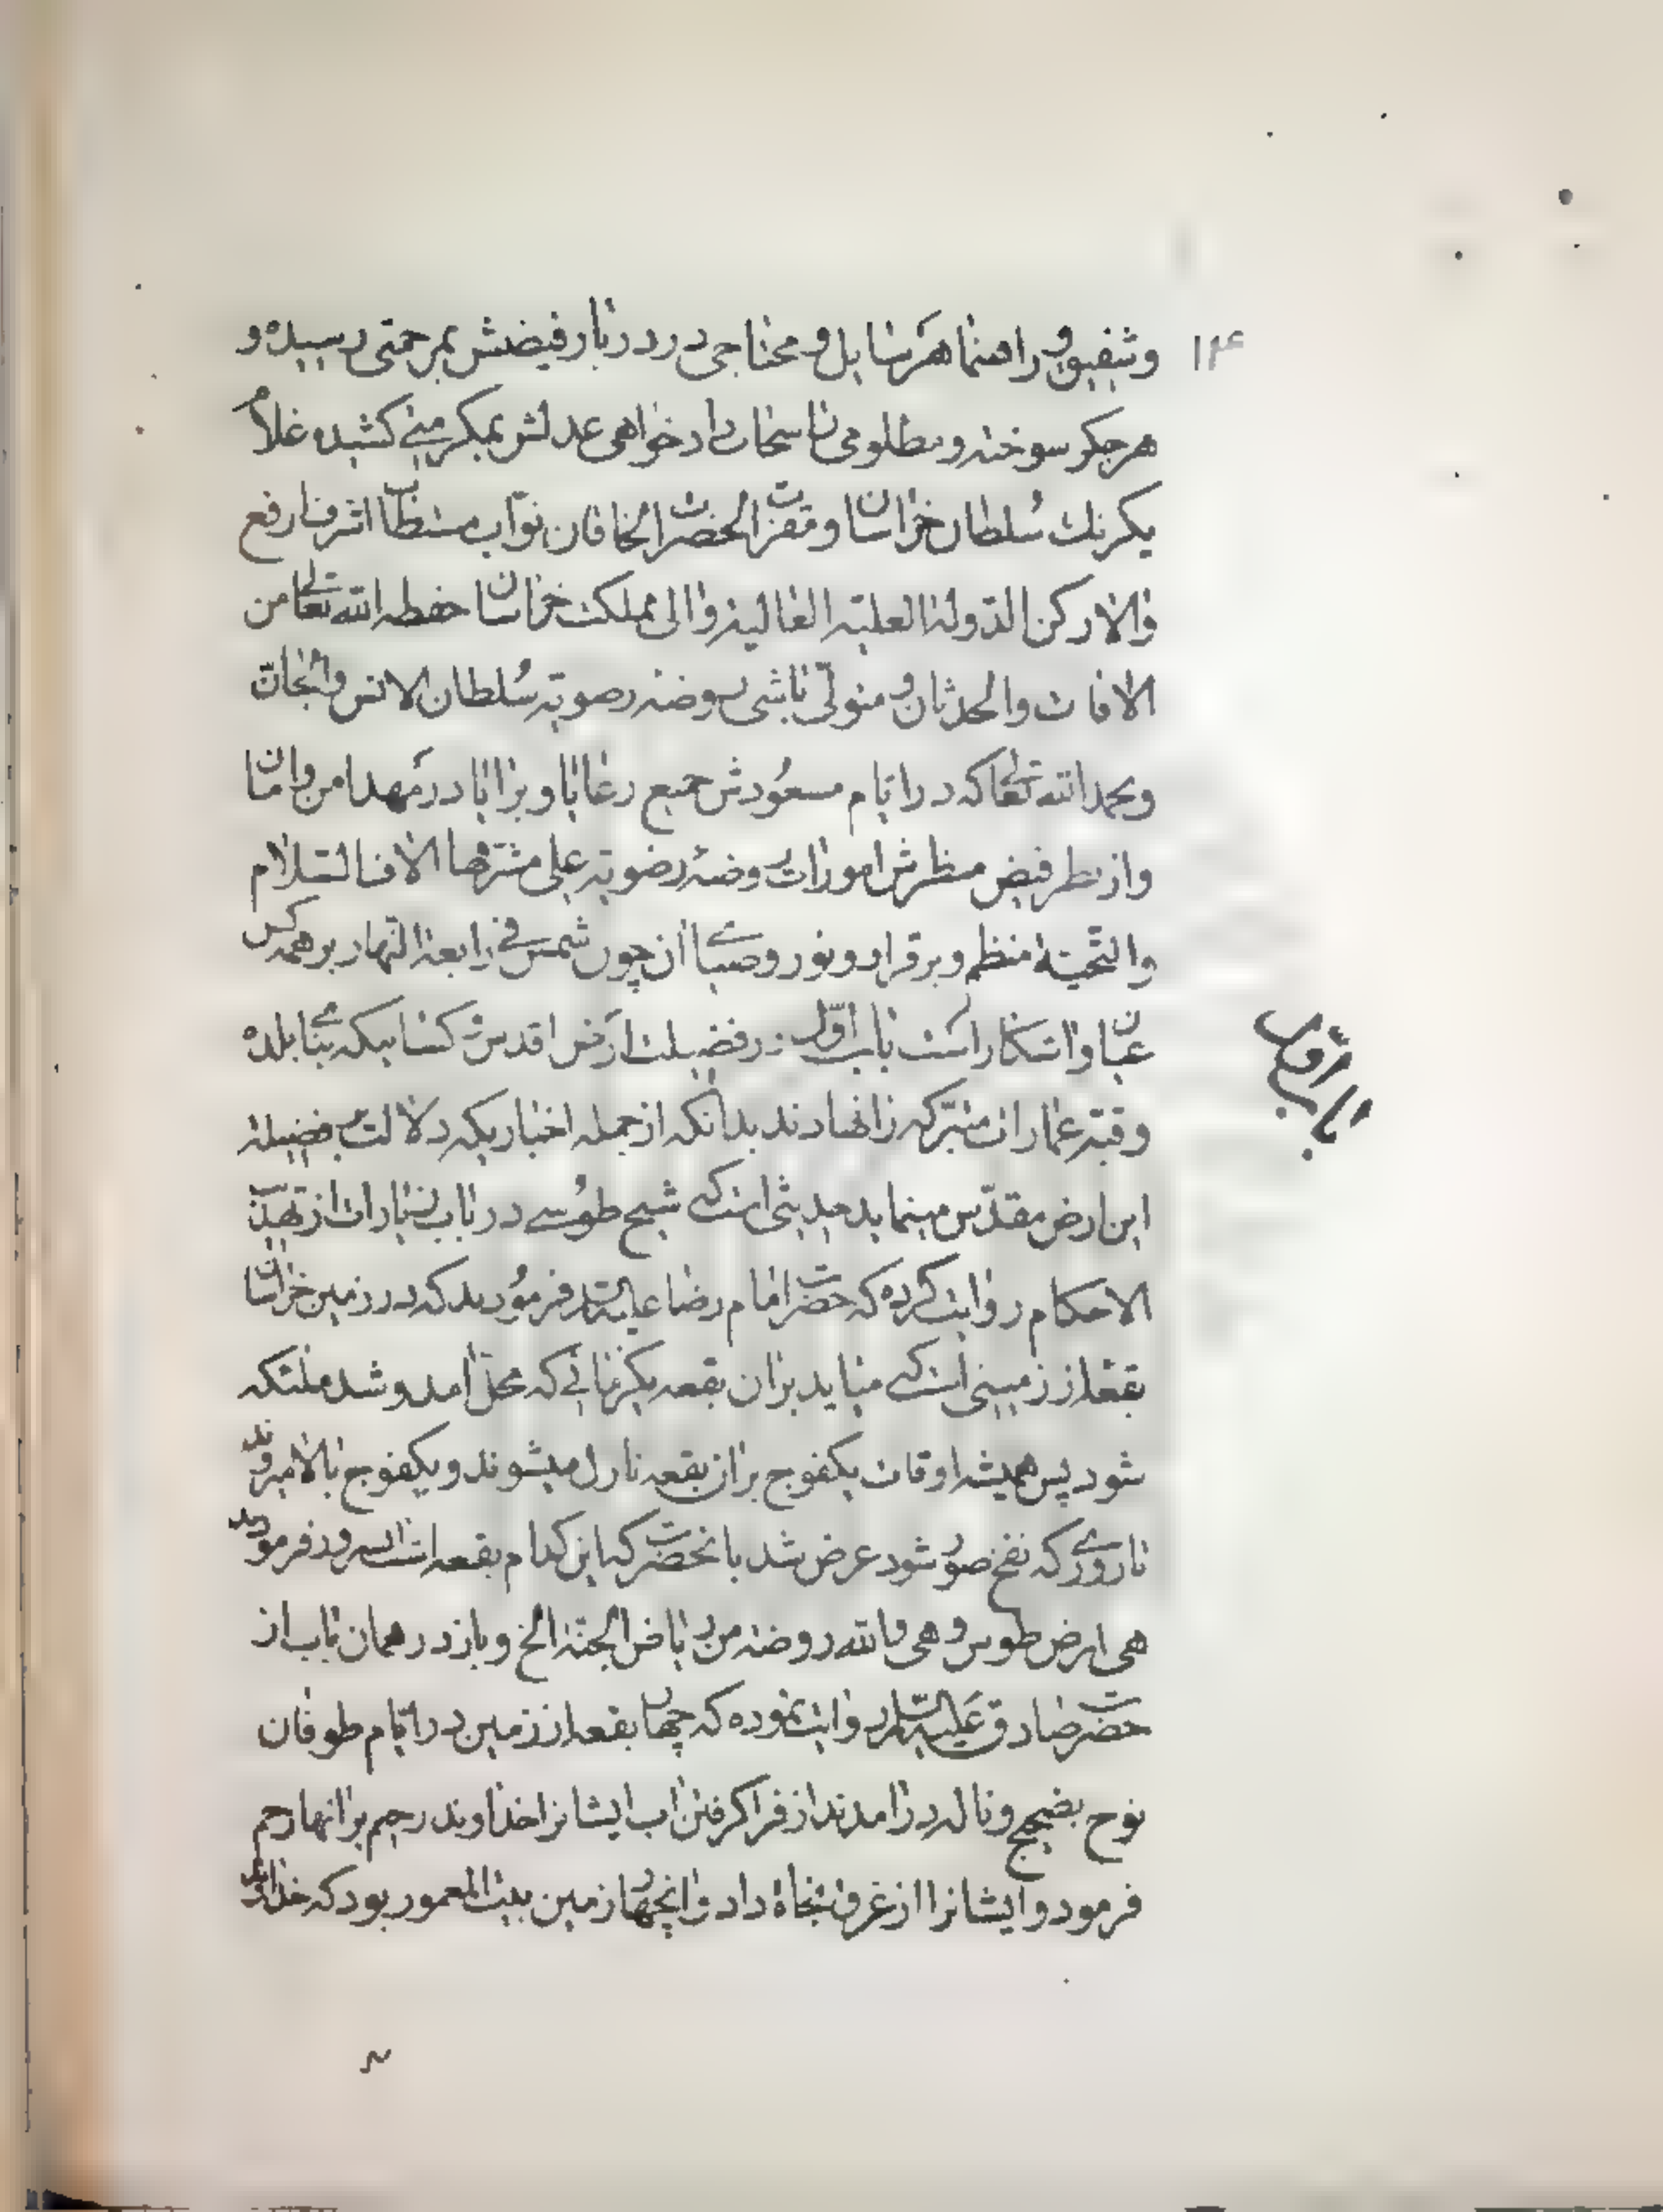 وشفیق و راهنما هر سایل و محتاجی در دربار فیضش بمرحمتی رسیده و
هر جکر سوخته و مظلومی باستان دادخواهی عدلش بمکرمتی کشیده غلام
یکرنک سلطان خراسان و مقرب الحضرت الخاقان نواب مستطاب اشرف ارفع
والا رکن الدوله العلیة العالیه والی مملکت خراسان حفظه الله تعالی من
الافات والحدثان و متولی باشی روضه رضویه سلطان الانس والجان
وبحمدالله تعالی که در ایام مسعودش جمیع رعایا و برایا در مهد امن وامان
واز نظر فیض منظرش امورات روضه رضویه علی مشرفها الاف السلام
والتحیة منظم و برقرار و نور و ضیاء ان چون شمس فی رابعة النهار بر همه کس
عیان واشکار است باب اول در فضیلت ارض اقدس و کسانیکه بنای بلده
وقبه عمارات متبرکه را نهادند بدانکه از جمله اخباریکه دلالت بفضیلة
این ارض مقدس مینماید حدیثی است که شیخ طوسی در باب زیارات از تهذیب
الاحکام روایت کرده که حضرت امام رضا علیه السلام فرمودند که در زمین خراسان
بقعه از زمینی است که میاید بران بقعه یکزمانی که محل امد و شد ملئکه
شود پس همیشه اوقات یکفوج بران بقعه نازل میشوند و یکفوج بالا میروند
تا روزی که نفخ صور شود عرض شد بانحضرت که این کدام بقعه است انسرور فرمودند
هی ارض طوس و هی والله روضه من ریاض الجنة الخ و باز در همان باب از
حضرت صادق علیه السلام روایت نموده که چهار بقعه از زمین در ایام طوفان
نوح بضجیج و ناله درامدند از فرا کرفتن اب ایشانرا خداوند رحیم بر انها رحم
فرمود و ایشانرا از غرق نجاة داد و انچهار زمین بیت المعمور بود که خداوند
باب اول